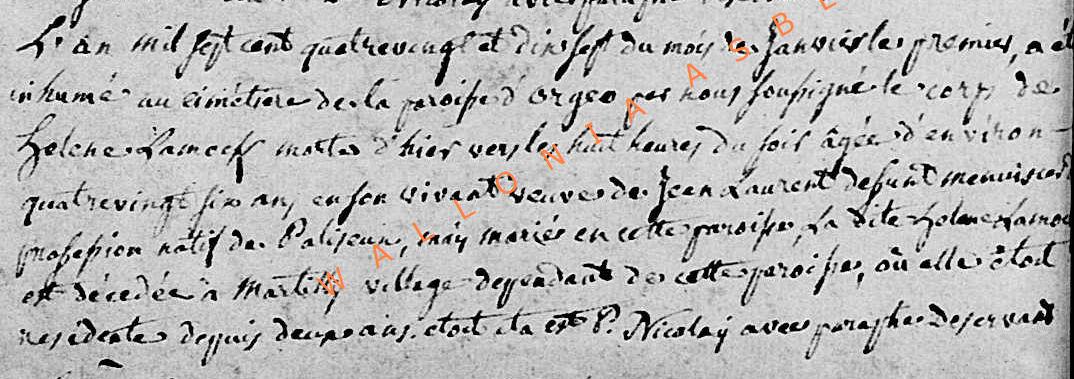 Nicolaÿ avec paraphe
L'an mil sept cent quatrevingt et dix sept du mois de Janvier le premier, a été
inhumé au cimetiere de la paroisse d'orgeo par nous soussigné le corps de
Helene Lamock morte d'hier vers les huit heures du soir âgée d'environ
quatrevingt six ans en son vivant veuve de Jean Laurent defunt menuisier
profession natif de Paliseux, mais mariés en cette paroisse, La dite Helene Lamo
est décedée a Martilly village dependant de cette paroisse, où elle étoit
residente depuis deux ans. etoit ita est P. Nicolaÿ avec paraphe Deservant
WALLONIA ASBL